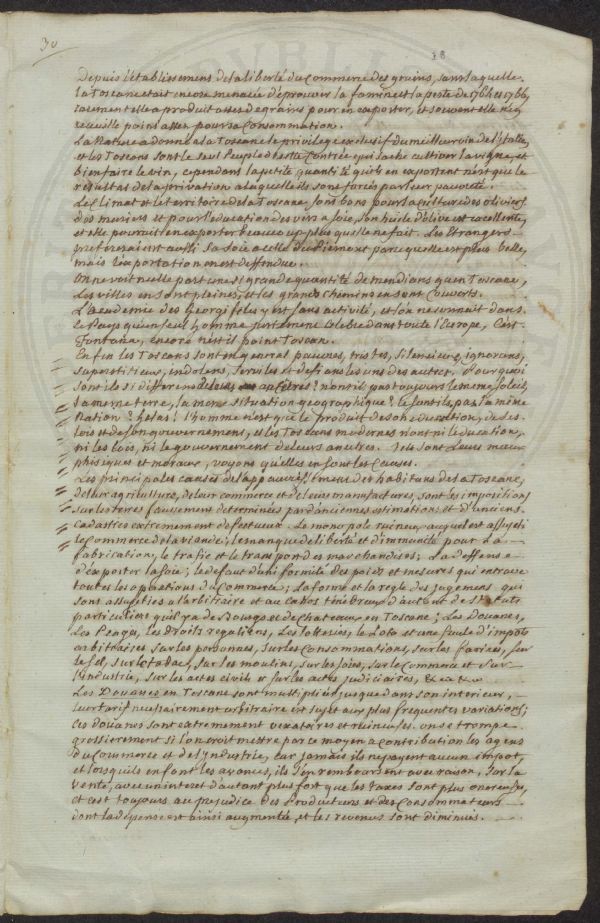 30
18
Depuis l'établissement de la liberté du Commerce des grains, sans laquelle
la Toscane etait encore menacée d'éprouver la famine et la peste de 1764 et 1766,
rarement elle a produit assez de grains pour en exporter, et souvent elle n'en
recueille point assez pour sa Consommation.
La Nature a donné a la Toscane le privilege exclusif du meilleur vin de l'Italie,
et les Toscans sont le seul Peuple de cette Contrée qui sache cultiver la vigne, et
bien faire le vin, cependant la petite quantité qu'ils en exportent n'est que le
resultat de la privation a laquelle ils sont forcés par leur pauvreté.
Le Climat et le territoire de la Toscane, sont bons pour la culture des oliviers
des muriers et pour l'education des vers a soie, son huile d'olive est excellente,
et elle pourroit en exporter beaucoup plus quelle ne fait. Les Etrangers
prefereraient aussi sa soie a celle du Piémont parcequ'elle est plus belle,
mais l'exportation en est deffendue.
On ne voit nulle part une si grande quantité de mendians qu'en Toscane,
Les villes en sont pleines, et les grands chemins en sont Couverts.
L'Academie des Georgifiles y est sans activité, et l'on ne connait dans
le Pays qu'un seul homme justement Celebre dans toute l'Europe, C'est
Fontana, encore n'est il point Toscan.
Enfin les Toscans sont en general pauvres, tristes, Silencieux, ignorans,
superstitieux, indolens, Serviles et defians les uns des autres. Pourquoi
sont ils si differens de leurs ancêtres? n'ont ils pas toujours le meme Soleil,
la meme terre, la meme situation geographique? Ne sont ils pas la même
Nation? hélas! l'homme n'est que le produit de son education, de ses
lois et de son gouvernement, et les Toscans modernes n'ont ni l'education,
ni les lois, ni le gouvernement de leurs ancetres. Tels sont leurs maux
phisiques et moraux, voyons quelles en sont les Causes.
Les principales causes de l'appauvrissement des habitans de la Toscane,
de leur agriculture, de leur commerce et de leurs manufactures, sont les impositions
sur les terres faussement determinées par d'anciennes estimations et d'anciens
Cadastres extremement defectueux. Le monopole ruineux, auquel est assujeti
le Commerce de la viande; le manque de liberté et d'immunité pour la
fabrication, le trafic et le transport des marchandises; La deffense
d'exporter la soie; le defaut d'uniformité des poids et mesures qui entrave
toutes les operations du Commerce; La forme et la regle des jugemens qui
sont assujettis a l'arbitraire et au cahos ténébreux d'autant de Statuts
particuliers qu'il y a de Bourgs et de Chateaux en Toscane; Les Douanes,
Les Peages, les Droits regaliens, Les lotteries, le Loto et une foule d'impots
arbitraires sur les personnes, Sur les Consommations, sur les farines, sur
le sel, sur le tabac, sur les moulins, sur les soies, sur le Commerce et sur
l'industrie, Sur les actes civils et sur les actes judiciaires, &c.
Les Douanes en Toscane sont multipliées jusque dans son interieur,
leur tarif necessairement arbitraire est sujet aux plus frequentes variations;
ces douanes sont extremement vexatoires et ruineuses. On se trompe
grossierement si l'on croit mettre par ce moyen a contribution les agens
du Commerce et de l'industrie, car jamais ils ne payent aucun impot,
et lorsqu'ils en font les avances, ils s'en remboursent avec raison, sur la
vente, avec un interet d'autant plus fort que les taxes sont plus onereuses,
et c'est toujours au prejudice des Producteurs et des Consommateurs
dont la depense est ainsi augmentée, et les revenus sont diminués.